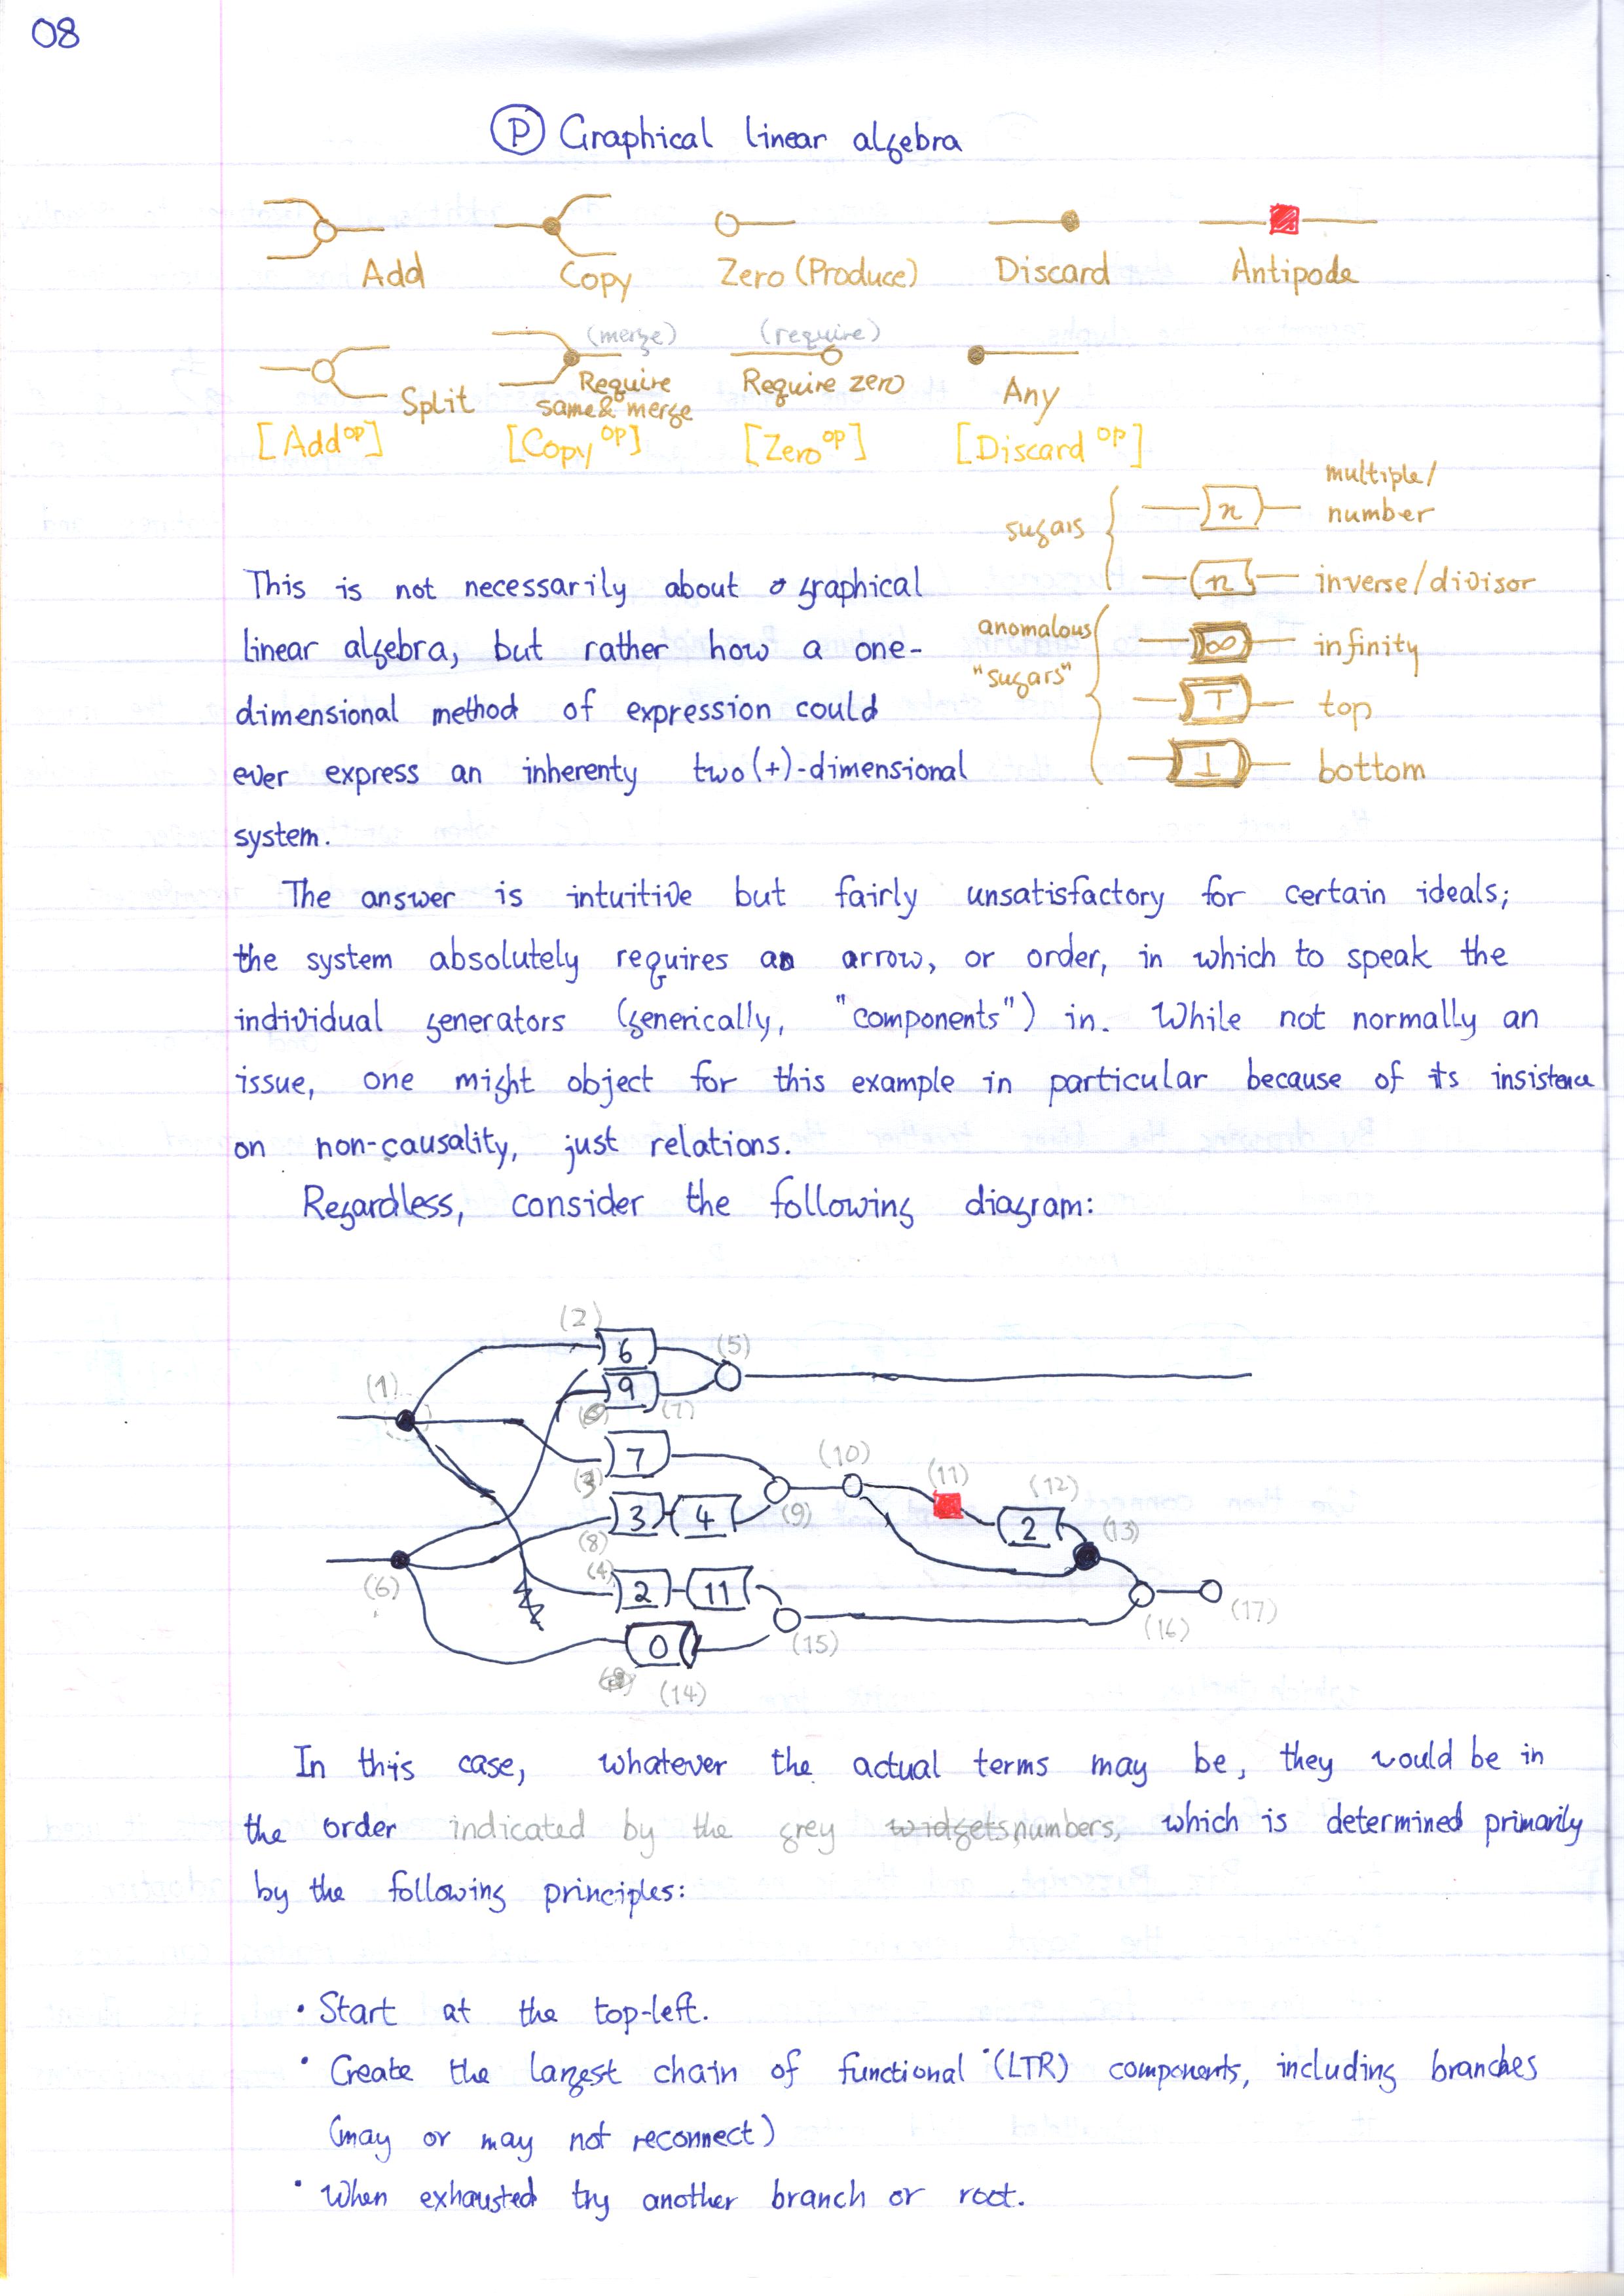 08
(P) Graphical linear algebra
Add
Copy
Zero (Produce)
Discard
Antipode
Split
(merge)
Require
same & merge
(require)
Require zero
Any
[Add^op]
[Copy^op]
[Zero^op]
[Discard^op]
sugars
n
multiple/
number
n
inverse/divisor
anomalous
"sugars"
∞
infinity
⊤
top
⊥
bottom
This is not necessarily about graphical
linear algebra, but rather how a one-
dimensional method of expression could
ever express an inherenty two(+)-dimensional
system.
The answer is intuitive but fairly unsatisfactory for certain ideals;
the system absolutely requires an arrow, or order, in which to speak the
individual generators (generically, "components") in. While not normally an
issue, one might object for this example in particular because of its insistence
on non-causality, just relations.
Regardless, consider the following diagram:
(2)
6
(5)
(1)
9
(7)
7
(3)
(10)
(11)
(12)
3
4
(9)
2
(13)
(8)
(6)
(4)
2
11
(15)
(16)
(17)
0
(14)
In this case, whatever the actual terms may be, they would be in
the order indicated by the grey widgets numbers, which is determined primarily
by the following principles:
• Start at the top-left.
• Create the largest chain of functional (LTR) components, including branches
(may or may not reconnect)
• When exhausted try another branch or root.